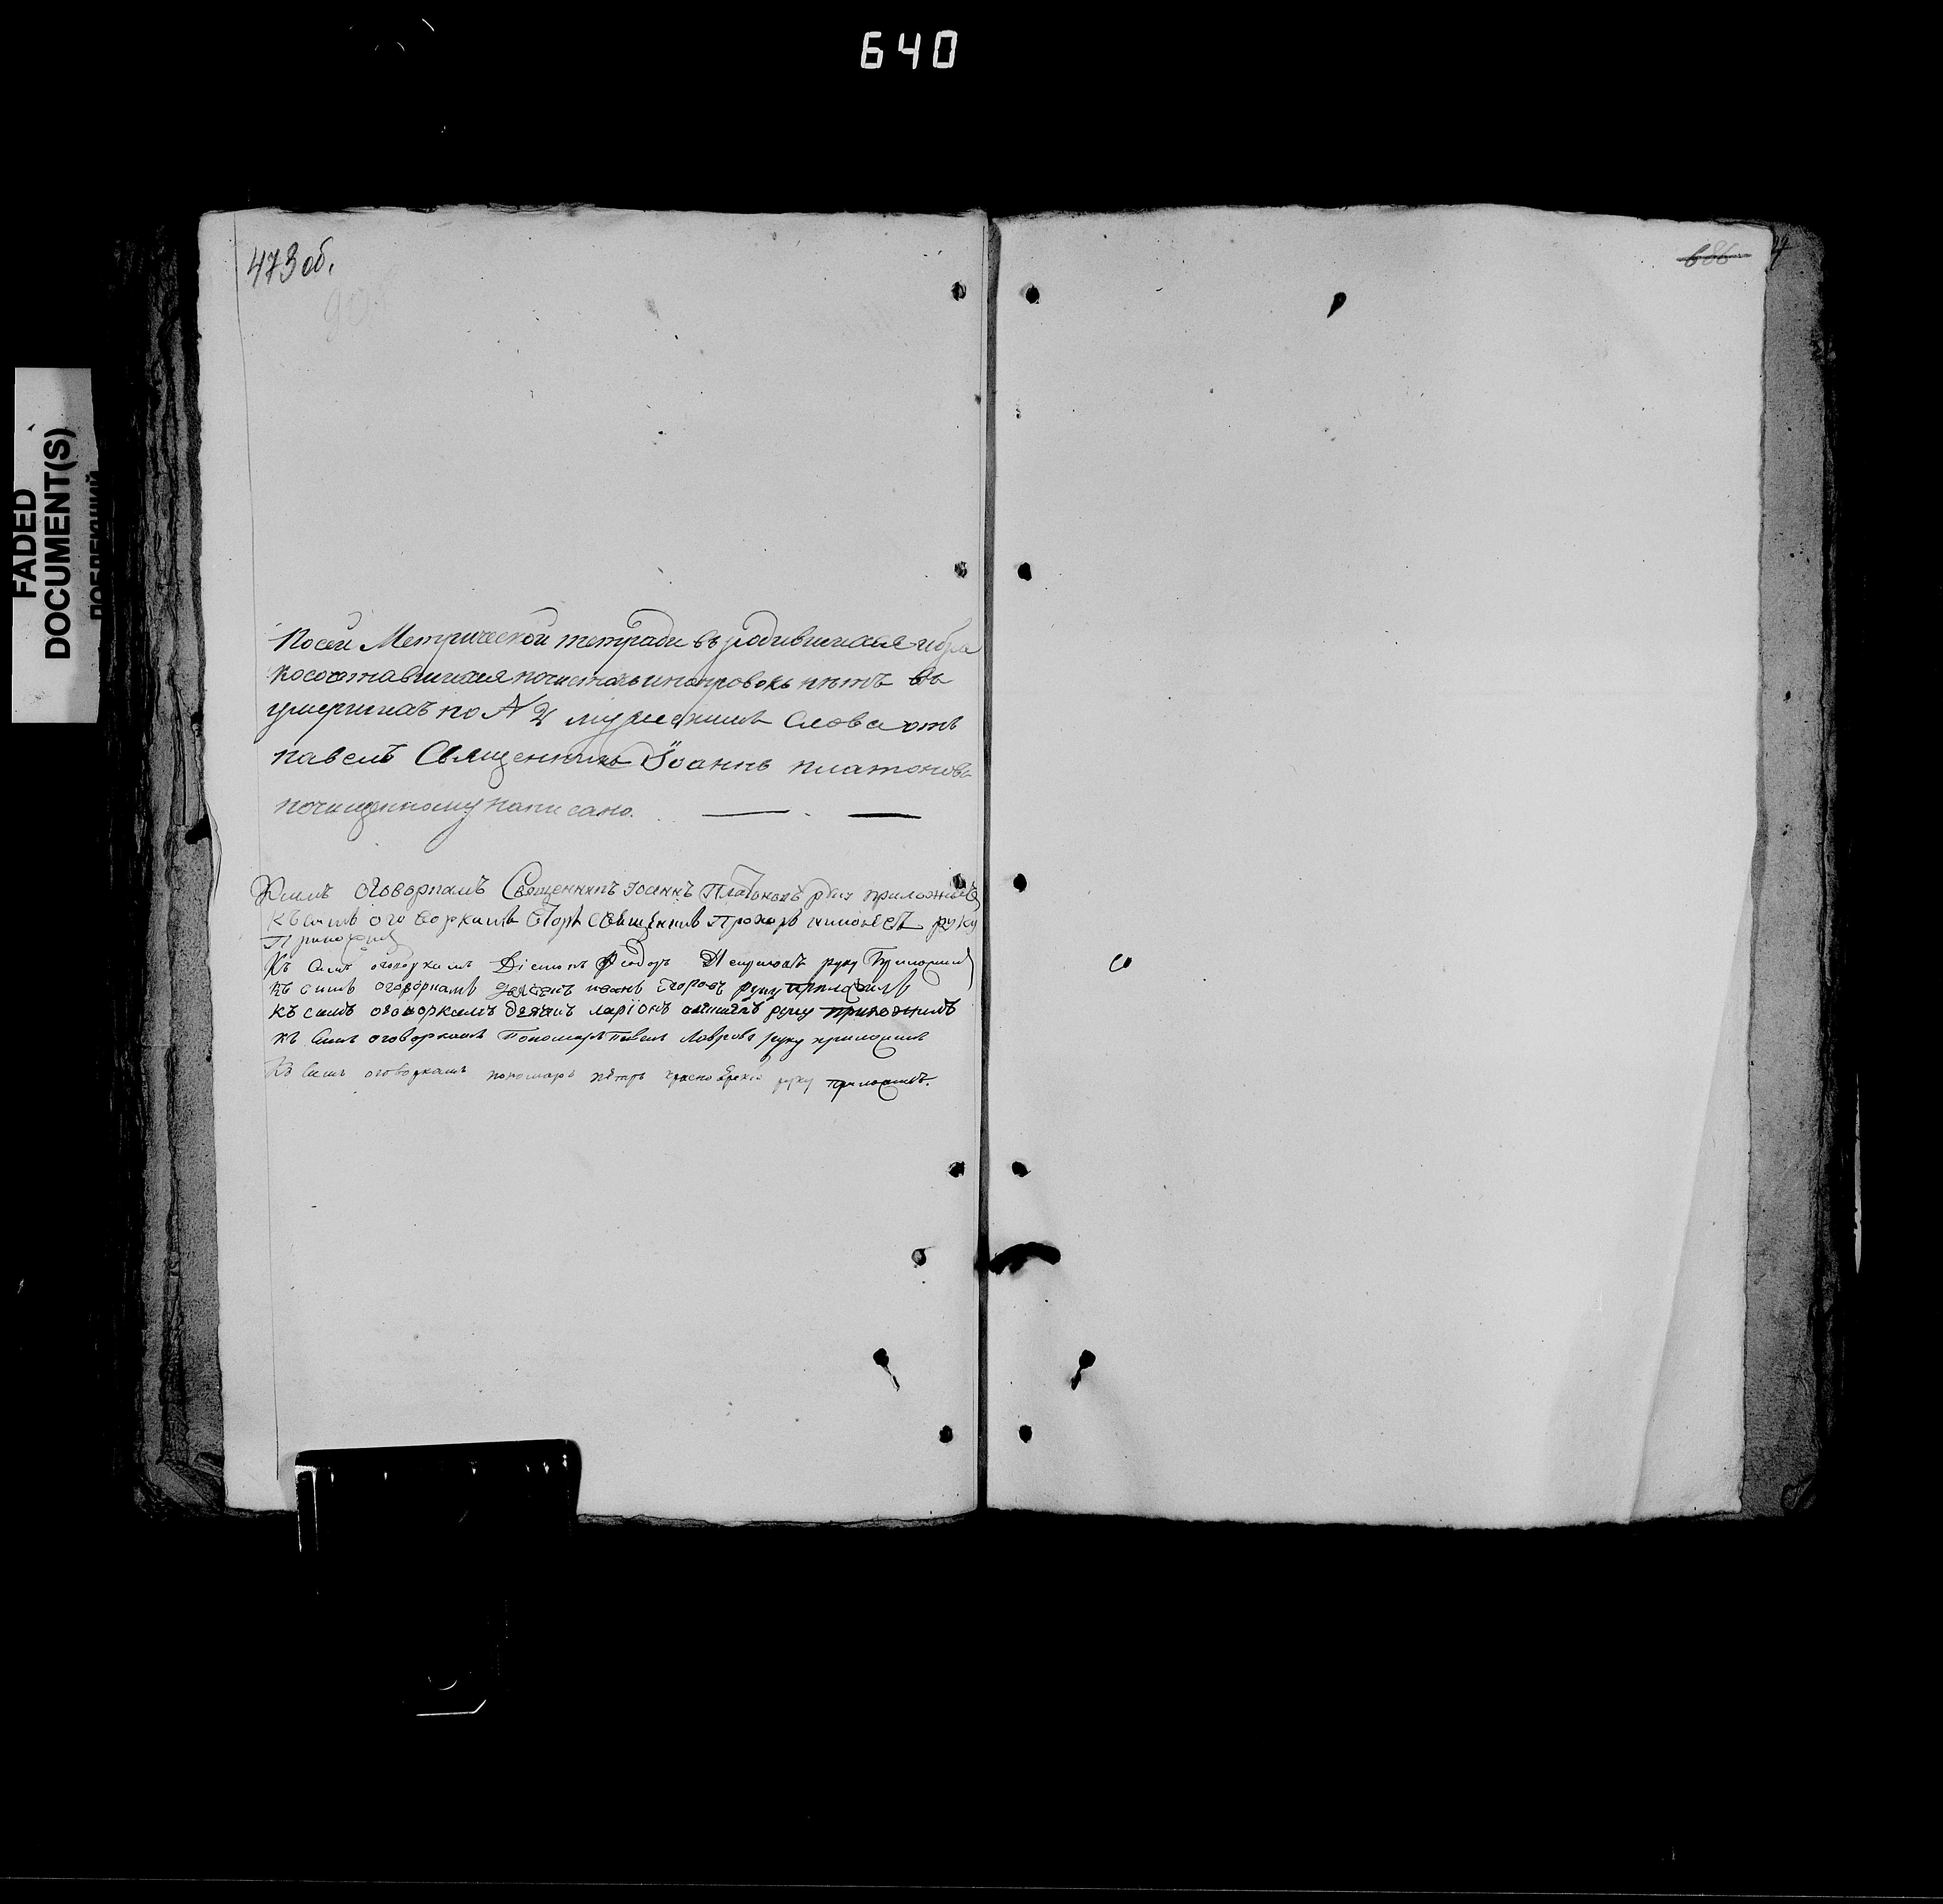 640
473 об.
686
FADED
DOCUMENT(S)
По сей Метрической тетради въ родившихся и бра
косочтавшихся почистокъ и поправокъ нетъ въ
умершихъ по № 2 слова отъ
павелъ Священникъ Иоаннъ платоновъ
почищенному написано.
симъ оговоркамъ Священникъ Иоаннъ Платоновъ руку приложилъ
къ симъ оговоркамъ священникъ Прохоръ руку
Приложилъ
Къ симъ оговоркамъ Діаконъ Федоръ руку Приложилъ
къ симъ оговоркамъ иванъ Егоровъ руку приложилъ
къ симъ оговоркамъ дьячекъ ларіонъ руку приложилъ
къ симъ оговоркамъ Пономарь павелъ Лавровъ руку приложилъ
Къ симъ оговоркамъ пономарь петръ руку приложилъ.